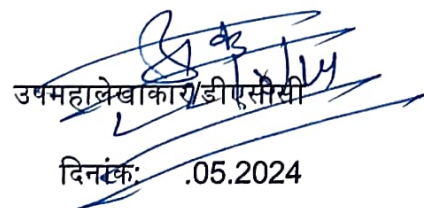 उपमहालेखाकार/डीएसीसी
दिनांक: .05.2024